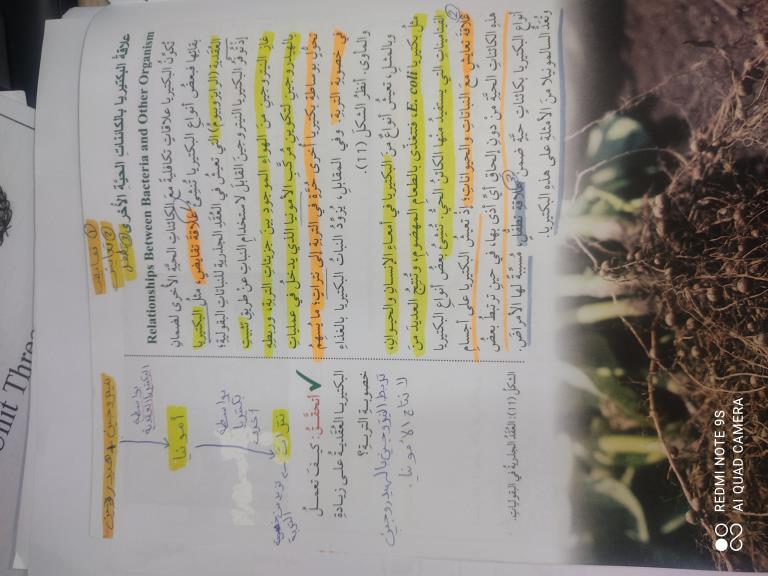 علاقة البكتيريا بالكائنات الحية الأخرى
Relationships Between Bacteria and Other Organism
تكوّن البكتيريا علاقات تكافلية مع الكائنات الحية الأخرى لضمان
بقائها فبعض أنواع البكتيريا تنشئ علاقة تقايض؛ مثل البكتيريا
العقدية (الرايزوبيوم) التي تعيش في العقد الجذرية للنباتات البقولية؛
إذ توفّر البكتيريا النيتروجين القابل لاستخدام النبات عن طريق تثبيت
غاز النيتروجين من الهواء الموجود بين جزيئات التربة، وربطه
بالهيدروجين لتكوين مركّب الأمونيا الذي يدخل في عمليات
تحوّل بوساطة بكتيريا أخرى حُرّة في التربة إلى نترات؛ ما يسهم
في خصوبة التربة. وفي المقابل، يزوّد النبات البكتيريا بالغذاء
والمأوى. أنظر الشكل (11).
وبالمثل، تعيش أنواع من البكتيريا في أمعاء الإنسان والحيوان،
مثل بكتيريا E. coli، فتتغذى بالطعام المهضوم، وتنتج العديد من
الفيتامينات التي يستفيد منها الكائن الحي. تنشئ بعض أنواع البكتيريا
علاقة تعايش مع النباتات والحيوانات؛ إذ تعيش البكتيريا على أجسام
هذه الكائنات الحية من دون إلحاق أي أذى بها، في حين ترتبط بعض
أنواع البكتيريا بكائنات حية ضمن علاقة تطفل، مسببة لها الأمراض.
وتُعدّ السالمونيلا من الأمثلة على هذه البكتيريا.
① تقايض
② تعايش
③ تطفل
نيتروجين + هيدروجين
بواسطة
البكتيريا العقدية
أمونيا
بواسطة
بكتيريا
أخرى
نترات
تزيد من خصوبة
التربة
✓ أتحقّق: كيف تعمل
البكتيريا العُقدية على زيادة
خصوبة التربة؟
تربط النيتروجين بالهيدروجين
لإنتاج الأمونيا.
الشكل (11): العُقد الجذرية في البقوليات.
Unit Three
REDMI NOTE 9S
AI QUAD CAMERA